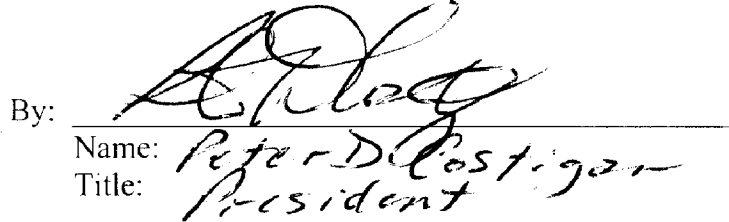 By:
Name: Peter D. Costigan
Title: President